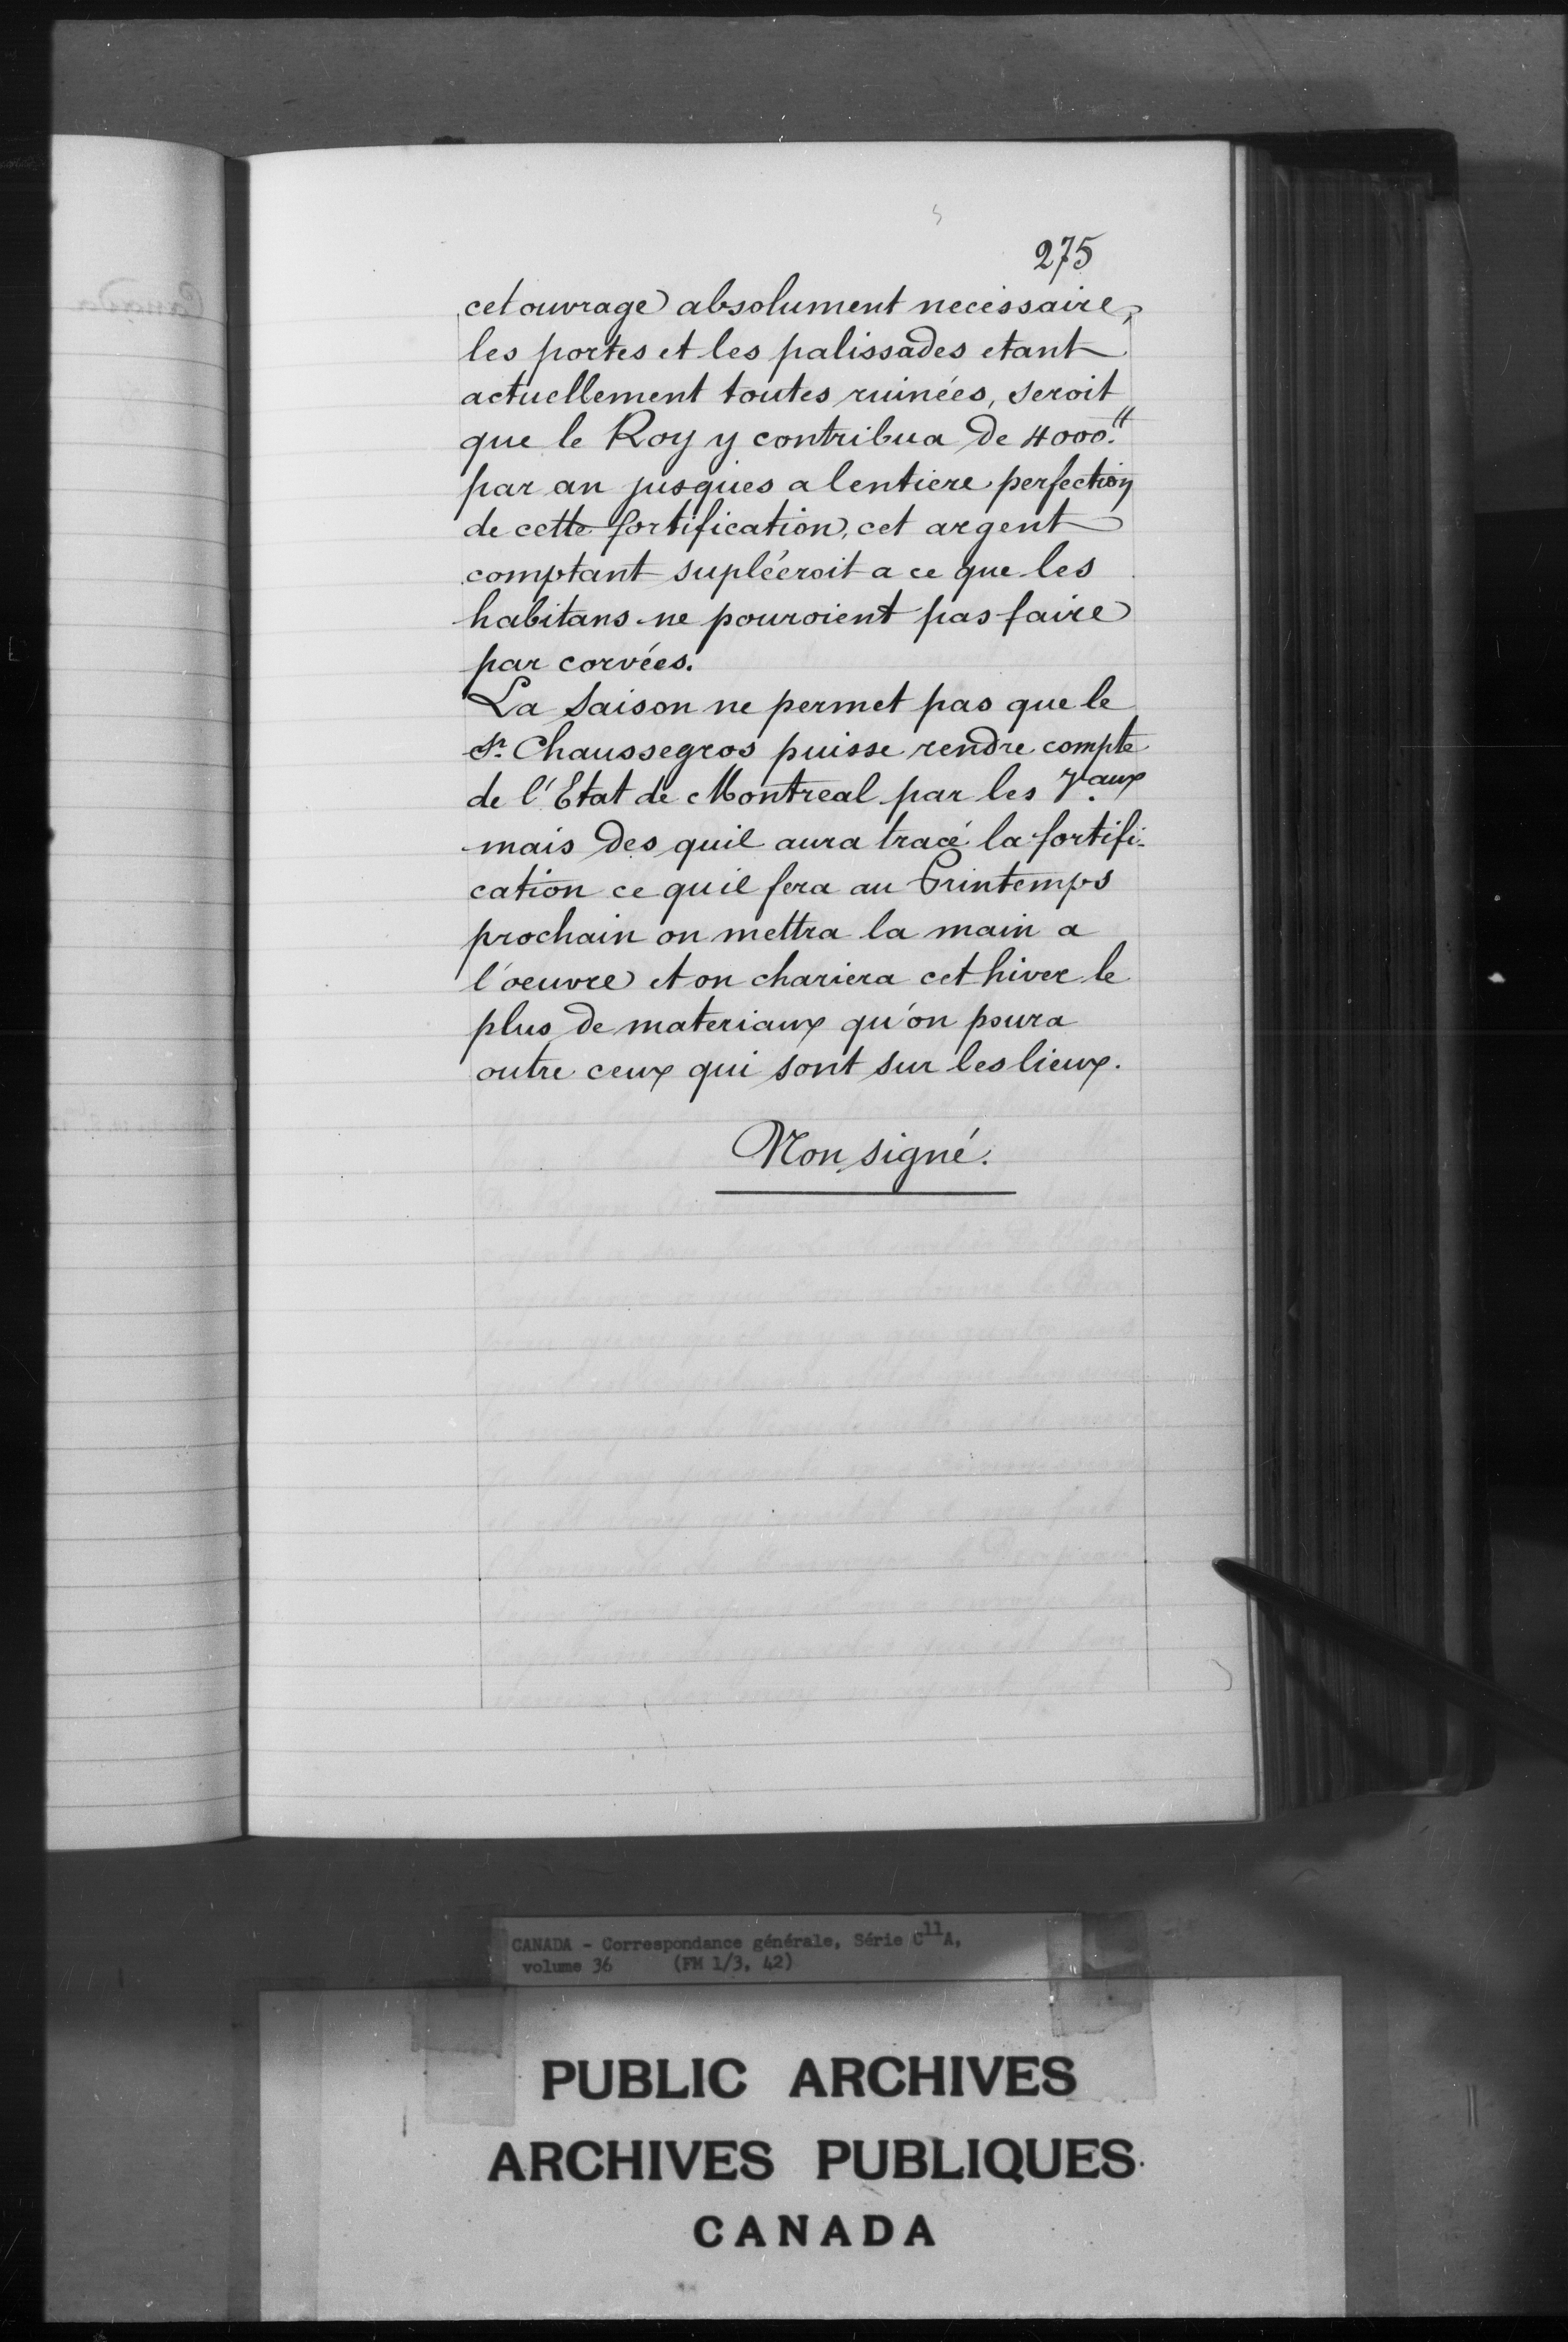 275
cet ouvrage absolument necessaire,
les portes et les palissades etant
actuellement toutes ruinées, seroit
que le Roy y contribua de 4000.ll
par an jusques a lentiere perfection
de cette fortification, cet argent
comptant supléeroit a ce que les
habitans ne pouroient pas faire
par corvées.
La Saison ne permet pas que le
Sr. Chaussegros puisse rendre compte
de l'Etat de Montreal par les Vaux
mais des quil aura tracé la fortifi-
cation ce quil fera au Printemps
prochain on mettra la main a
l'oeuvre et on chariera cet hiver le
plus de materiaux qu'on poura
outre ceux qui sont sur les lieux.
Non signé.
CANADA - Correspondance générale, Série C11A,
volume 36 (FM 1/3, 42)
PUBLIC ARCHIVES
ARCHIVES PUBLIQUES
CANADA